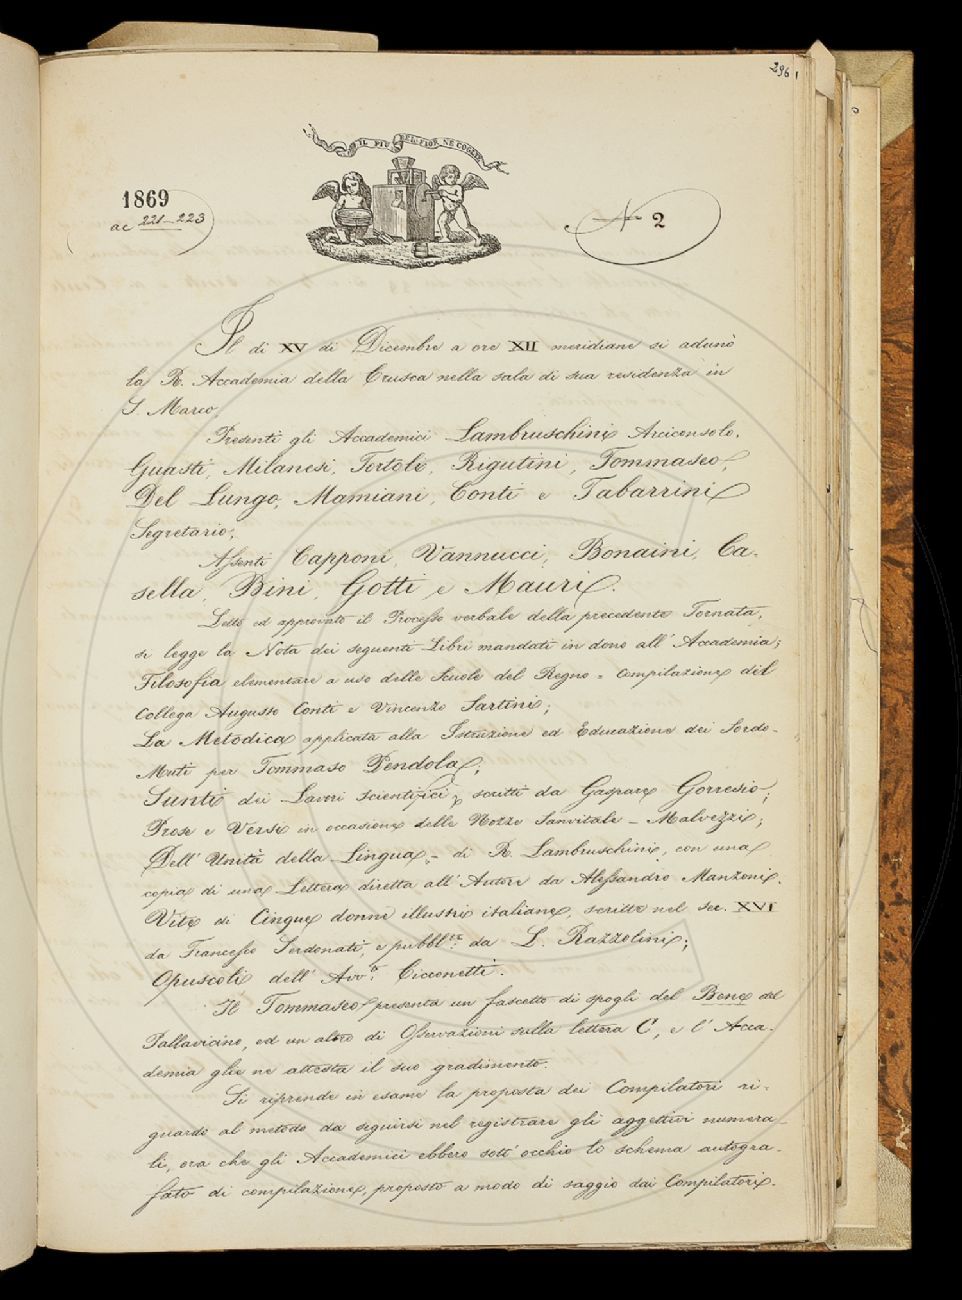 296
IL PIU BEL FIOR NE COGLIE
1869
ac 221-223
N 2
Il dì XV di Dicembre a ore XII meridiane si adunò
la R. Accademia della Crusca nella sala di sua residenza in
S. Marco.
Presenti gli Accademici Lambruschini Arciconsolo,
Guasti, Milanesi, Tortoli, Rigutini, Tommaseo,
Del Lungo, Mamiani, Conti e Tabarrini
Segretario;
Assenti Capponi, Vannucci, Bonaini, Ca-
sella, Bini, Gotti e Mauri.
Letto ed approvato il Processo verbale della precedente Tornata,
si legge la Nota dei seguenti Libri mandati in dono all'Accademia;
Filosofia elementare a uso delle Scuole del Regno = Compilazione del
Collega Augusto Conti e Vincenzo Sartini;
La Metodica applicata alla Istruzione ed Educazione dei Sordo-
Muti per Tommaso Pendola;
Sunti dei Lavori scientifici, scritti da Gaspare Gorresio;
Prose e Versi in occasione delle Nozze Sanvitale - Malvezzi;
Dell'Unità della Lingua, - di R. Lambruschini, con una
copia di una Lettera diretta all'Autore da Alessandro Manzoni.
Vite di Cinque donne illustri italiane, scritte nel sec. XVI
da Francesco Serdonati, e pubbl.te da L. Razzolini;
Opuscoli dell'Avv.to Cicconetti.
Il Tommaseo presenta un fascetto di spogli del Bene del
Pallavicino, ed un altro di Osservazioni sulla lettera C, e l'Acca-
demia glie ne attesta il suo gradimento.
Si riprende in esame la proposta dei Compilatori ri-
guardo al metodo da seguirsi nel registrare gli aggettivi numera-
li, ora che gli Accademici ebbero sott'occhio lo schema autogra-
fato di compilazione, proposto a modo di saggio dai Compilatori.